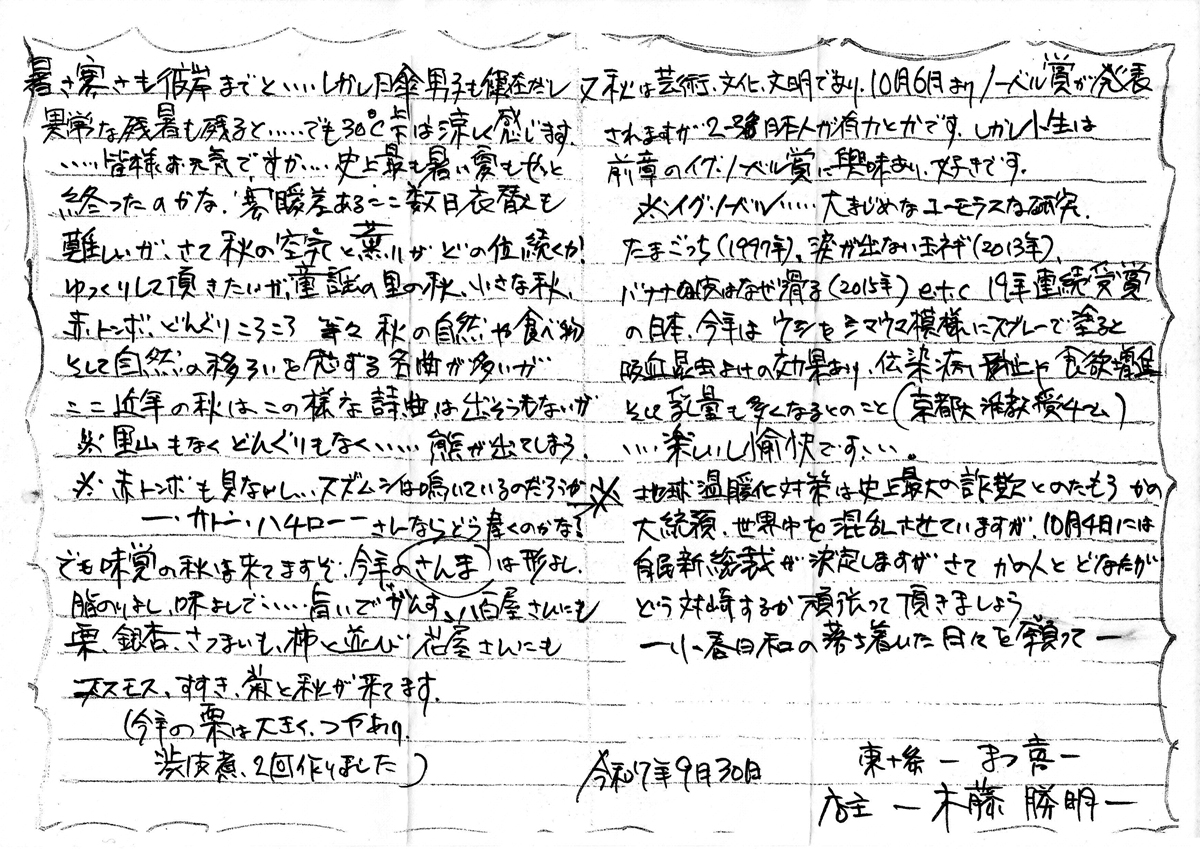 暑さ寒さも彼岸までと‥‥しかし日傘男子も健在だし
異常な残暑も残ると‥‥‥でも30℃上下は涼しく感じます。
‥‥‥皆様お元気ですか‥‥史上最も暑い夏もやっと
終ったのかな、寒暖差あるここ数日衣替えも
難しいが、さて秋の空気と葉いがどの位続くか
ゆっくりして頂きたいが、童謡の里の秋、小さな秋、
赤トンボ、どんぐりころころ 等々 秋の自然や食べ物
そして自然の移ろいを感ずる名曲が多いが
ここ近年の秋はこの様な詩曲は出そうもないが
※里山もなくどんぐりもなく‥‥‥熊が出てしまう。
※赤トンボも見ないし‥‥スズムシは鳴いているのだろうか
ー・サトー・ハチローーさんならどう書くのかな!
でも味覚の秋は来てますぞ、今年のさんまは形よし、
脂のりよし、味よしで‥‥‥旨いでがんす、八百屋さんにも
栗、銀杏、さつまいも、柿と並び 花屋さんにも
コスモス、すすき、菊と秋が来てます。
(今年の栗は大きく、つやあり、
渋皮煮、2回作りました)
又秋は芸術、文化、文明であり、10月6日よりノーベル賞が発表
されますが2〜3名日本人が有力とかです。しかし小生は
前章のイグ・ノーベル賞に興味あり、好きです。
※イグ・ノーベル‥‥‥大まじめなユーモラスな研究。
たまごっち(1997年)、涙が出ない玉ネギ(2013年)、
バナナの皮はなぜ滑る(2015年)e.t.c 19年連続受賞
の日本、今年はウシをシマウマ模様にスプレーで塗ると
吸血昆虫よけの効果あり、伝染病防止や食欲増進
そして乳量も多くなるとのこと(京都大 教授チーム)
‥‥楽しいし愉快です‥‥。
※地球温暖化対策は史上最大の詐欺とのたもうかの
大統領、世界中を混乱させていますが、10月4日には
自民新総裁が決定しますが さて かの人と どなたが
どう対峙するか 頑張って頂きましょう
ー小春日和の落ち着いた日々を願ってー
令和7年9月30日
東十条 ー まつ喜ー
店主 ー 木藤 勝明ー